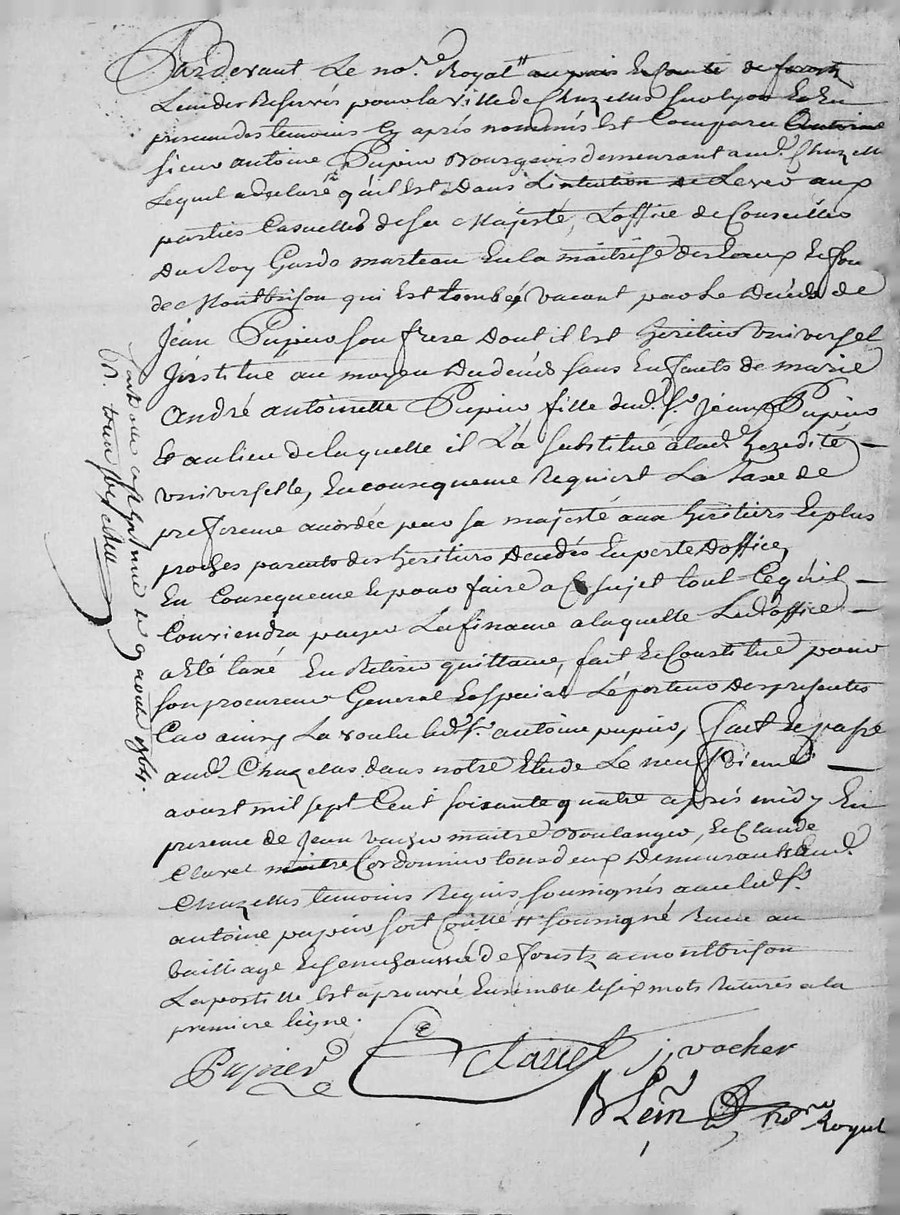 Pardevant Le no.re Royal au pais Et Comté de forestz
pour la ville de Chazelles sur lyon Et En
presence des temoins Cy après nommés Est Comparu Antoine
Sieur antoine Pupier Bourgeois demeurant aud. Chazelles
Lequel a declaré qu'il Est Dans L'intention de Lever aux
parties Casuelles de Sa Majesté, L'office de Conseiller
Du Roy Garde marteau En la maitrise des Eaux Et for
de Montbrison qui Est tombé vacant par Le Décès de
Jean Pupier Son frere Dont il Est heritier Universel
Institué au moyen du décès Sans Enfants de marie
André antoinette Pupier fille dud. Sr. Jean Pupier
Et au lieu de laquelle il L'a Substitué à lad. heredité
Universelle, En consequence Requiert La Taxe de
preference accordée par Sa majesté aux heritiers Et plus
proches parents des heritiers Decedés En perte D'office,
En Consequence Et pour faire a Ce Sujet tout Ce qu'il
Conviendra payer La finance a laquelle Led. office
a Eté taxé En Retirer quittance, fait Et Constitué pour
Son procureur General Et Special Le porteur Des presentes
Car ainsy L'a voulu led. Sr. antoine pupier, fait Et passé
aud. Chazelles dans notre Etude Le neufvieme
aoust mil Sept Cent Soixante quatre après midy En
presence de Jean vacher maitre Boulanger, Et Claude
Clavel maitre Cordonnier tous deux Demeurants aud.
Chazelles temoins Requis Soussignés avec led. Sr.
antoine pupier Soit Soussigné Reçu au
bailliage Et Senechaussée de forestz a montbrison
L'apostille Est aprouvée Ensemble les Six mots Raturés a la
premiere ligne.
Pupier Clavel j vacher
no.re Royal
le 9 aoust 1764.